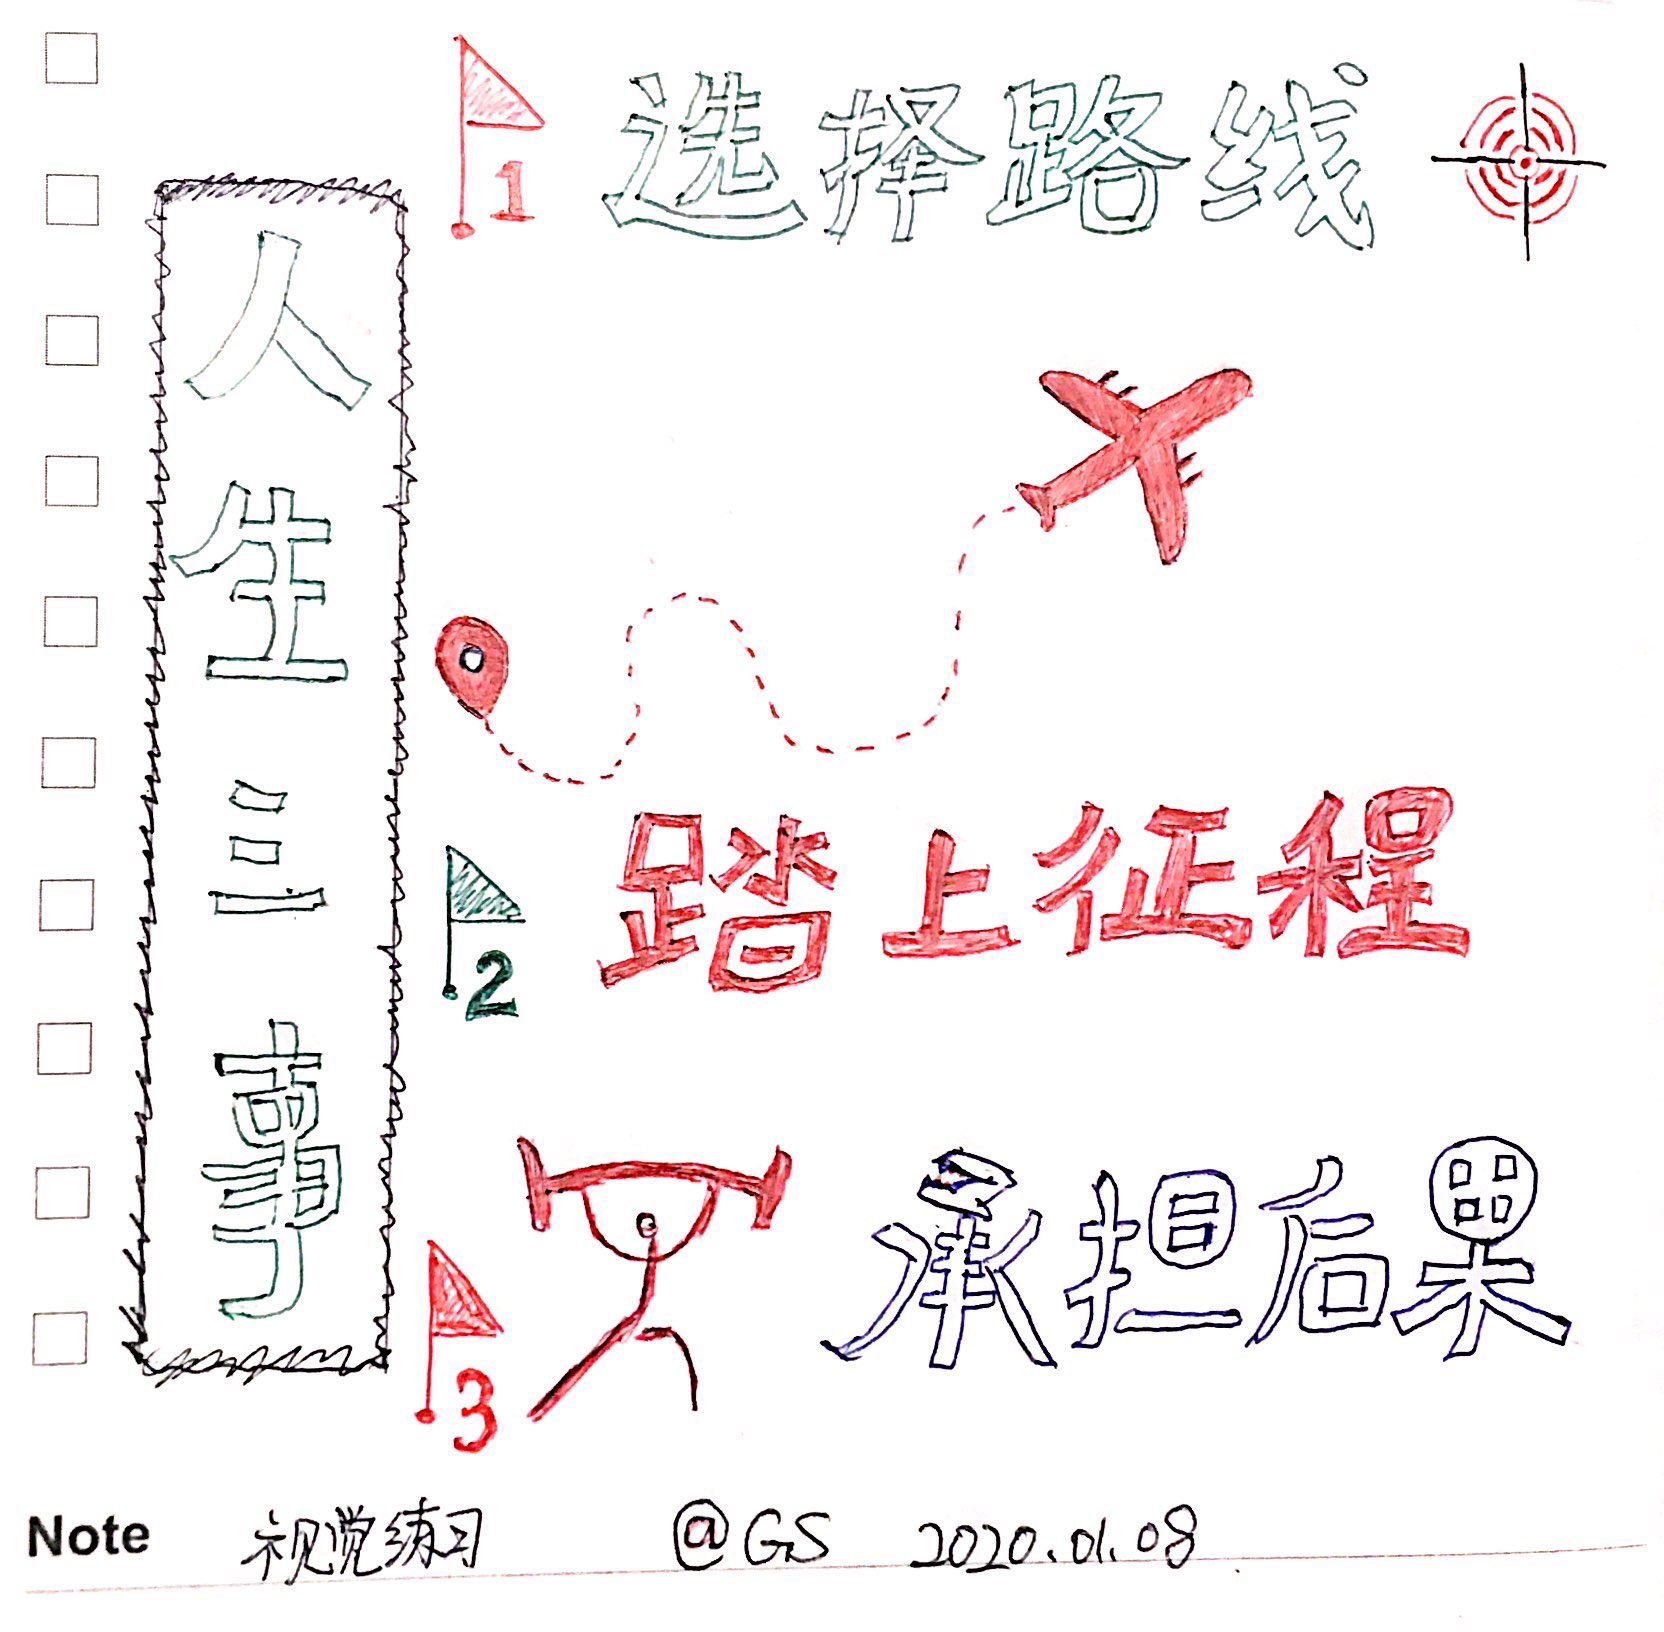 人生三事
1 选择路线
2 踏上征程
3 承担后果
Note 视觉练习 @GS 2020.01.08